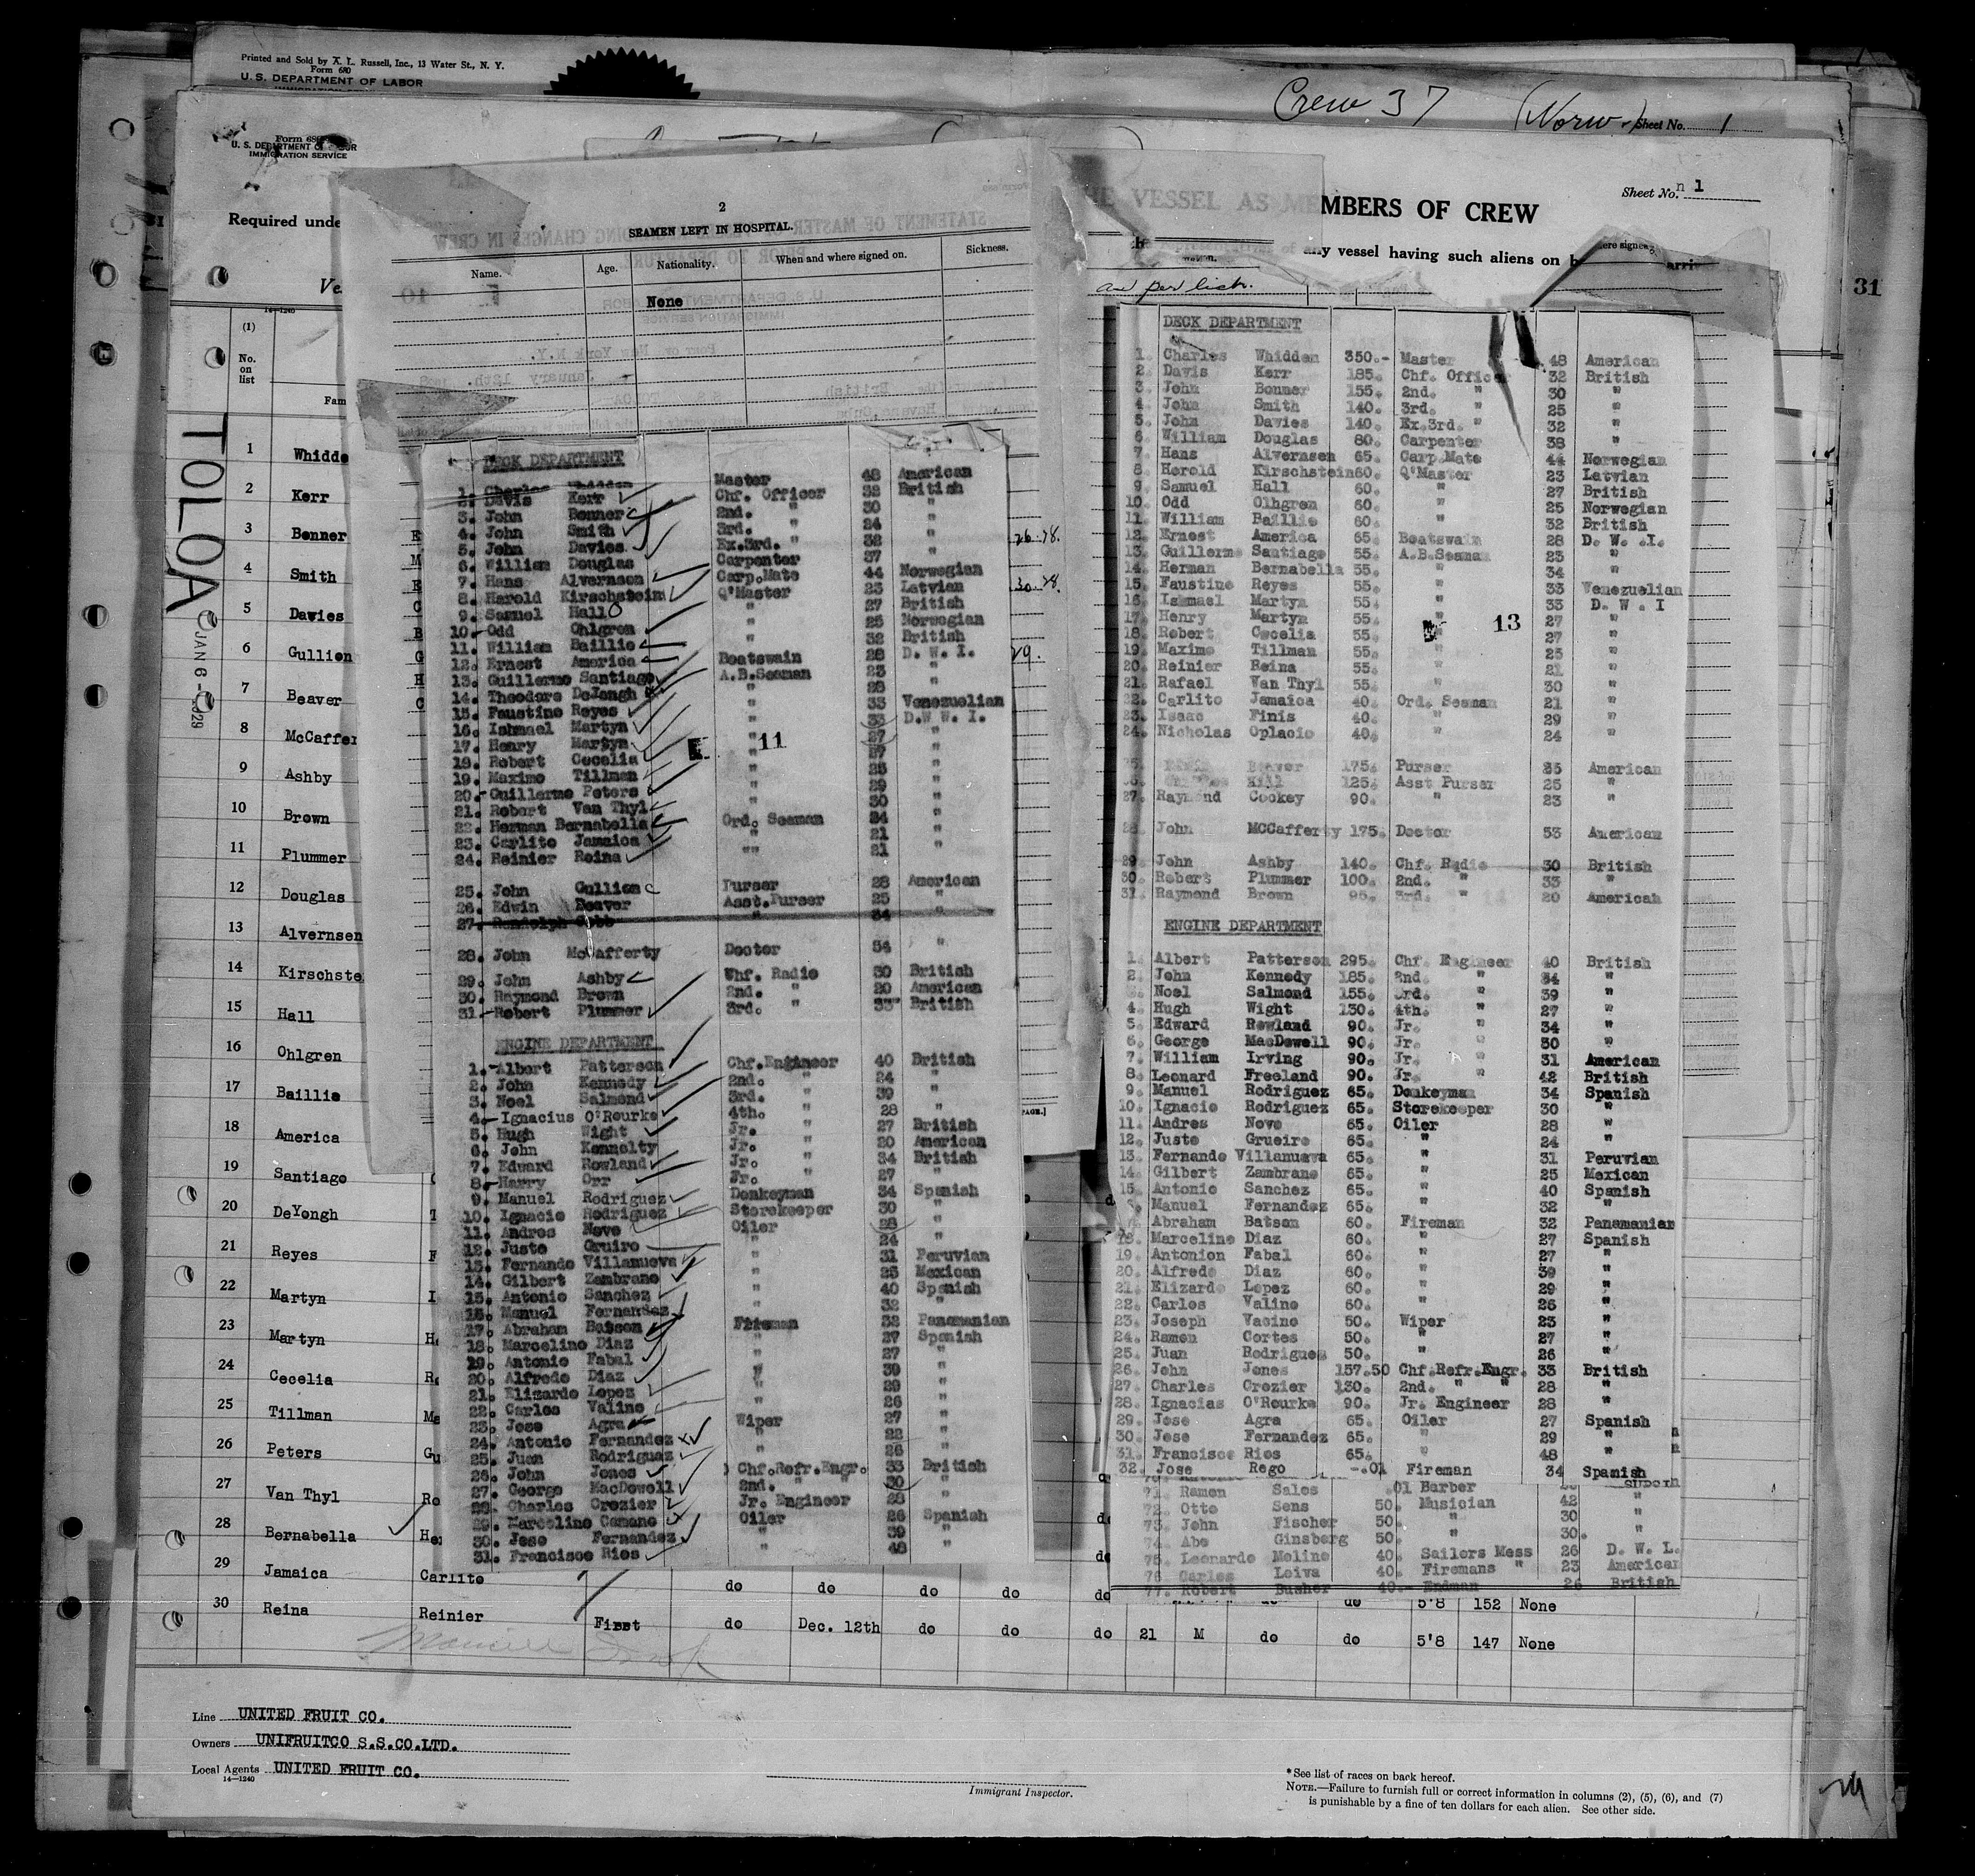 Printed and Sold by A. L. Russell, Inc., 13 Water St., N. Y.
Form 680
U. S. DEPARTMENT OF LABOR
Crew 37 (Norw.) Sheet No. 1
Form 680
U. S. DEPARTMENT OF LABOR
IMMIGRATION SERVICE
Sheet No. 1
MBERS OF CREW
Required unde
any vessel having such aliens on b
31
TOLOA
JAN 6 - 1929
14—1240
(1)
No. on list
Fam
1 Whidde
2 Kerr
3 Bonner
4 Smith
5 Davies
6 Gullion
7 Beaver
8 McCaffer
9 Ashby
10 Brown
11 Plummer
12 Douglas
13 Alvernsen
14 Kirschste
15 Hall
16 Ohlgren
17 Baillie
18 America
19 Santiago
20 DeYongh
21 Reyes
22 Martyn
23 Martyn
24 Cecelia
25 Tillman
26 Peters
27 Van Thyl
28 Bernabella
29 Jamaica Carlito do do do do
30 Reina Reinier First do Dec. 12th do do do 21 M do do 5'8 147 None
do 5'8 152 None
Line UNITED FRUIT CO.
Owners UNIFRUITCO S.S.CO.LTD.
Local Agents UNITED FRUIT CO.
14—1240
Immigrant Inspector.
*See list of races on back hereof.
NOTE.—Failure to furnish full or correct information in columns (2), (5), (6), and (7)
is punishable by a fine of ten dollars for each alien. See other side.
2
SEAMEN LEFT IN HOSPITAL.
Name. Age. Nationality. When and where signed on. Sickness.
None
DECK DEPARTMENT
1. Charles Whidden Master 48 American
2. Davis Kerr Chf. Officer 32 British
3. John Bonner 2nd. " 30 "
4. John Smith 3rd. " 24 "
5. John Davies Ex.3rd. " 32 "
6. William Douglas Carpenter 37 "
7. Hans Alvernson Carp.Mate 44 Norwegian
8. Harold Kirschstein Q'Master 23 Latvian
9. Samuel Hall " 27 British
10. Odd Ohlgren " 25 Norwegian
11. William Baillie " 32 British
12. Ernest America Boatswain 28 D. W. I.
13. Guillermo Santiago A.B.Seaman 23 "
14. Theodore DeJongh " 28 "
15. Faustino Reyes " 33 Venezuelian
16. Ishmael Martyn " 33 D.W W. I.
17. Henry Martyn " 27 "
18. Robert Cecelia " 27 "
19. Maximo Tillman " 25 "
20. Guillermo Peters " 29 "
21. Robert Van Thyl " 30 "
22. Herman Bernabella Ord. Seaman 34 "
23. Carlito Jamaica " 21 "
24. Reinier Reina "" 21 "
11
25. John Gullion Purser 28 American
26. Edwin Beaver Asst.Purser 25 "
27. Randolph Cobb " 34 "
28. John McCafferty Doctor 54 "
29. John Ashby Whf. Radio 30 British
30. Raymond Brown 2nd. " 20 American
31. Robert Plummer 3rd. " 33 British
ENGINE DEPARTMENT
1. Albert Patterson Chf.Engineer 40 British
2. John Kennedy 2nd. " 24 "
3. Noel Salmond 3rd. " 39 "
4. Ignacius O'Rourke 4th. " 28 "
5. Hugh Wight Jr. " 27 British
6. John Kennelty Jr. " 20 American
7. Edward Rowland Jr. " 34 British
8. Harry Orr Jr. " 27 "
9. Manuel Rodriguez Donkeyman 34 Spanish
10. Ignacio Rodriguez Storekeeper 30 "
11. Andres Nove Oiler 28 "
12. Juste Gruiro " 24 "
13. Fernando Villanueva " 31 Peruvian
14. Gilbert Zambrano " 25 Mexican
15. Antonio Sanchez " 40 Spanish
16. Manuel Fernandez " 32 "
17. Abraham Batson Fireman 32 Panamanian
18. Marcelino Diaz " 27 Spanish
19. Antonio Fabal " 27 "
20. Alfredo Diaz " 39 "
21. Elizardo Lopez " 29 "
22. Carlos Valino " 26 "
23. Jose Agra Wiper 27 "
24. Antonio Fernandez " 22 "
25. Juan Rodriguez " 26 "
26. John Jones Chf.Refr.Engr. 33 British
27. George MacDowell 2nd. " " 30 "
28. Charles Crozier Jr. Engineer 28 "
29. Marcelino Camano Oiler 26 Spanish
30. Jose Fernandez " 39 "
31. Francisco Rios " 48 "
as per list.
DECK DEPARTMENT
1. Charles Whidden 350.- Master 48 American
2. Davis Kerr 185. Chf. Officer 32 British
3. John Bonner 155. 2nd. " 30 "
4. John Smith 140. 3rd. " 25 "
5. John Davies 140. Ex.3rd. " 32 "
6. William Douglas 80. Carpenter 38 "
7. Hans Alvernsen 65. Carp.Mate 44 Norwegian
8. Herold Kirschstein 60. Q'Master 23 Latvian
9. Samuel Hall 60. " 27 British
10. Odd Olhgren 60. " 25 Norwegian
11. William Baillie 60. " 32 British
12. Ernest America 65. Boatswain 28 D. W. .I.
13. Guillerme Santiago 55. A.B.Seaman 23 "
14. Herman Bernabella 55. " 34 "
15. Faustine Reyes 55. " 33 Venezuelian
16. Ishmael Martyn 55. " 33 D. W. I
17. Henry Martyn 55. " 27 "
18. Robert Cecelia 55. " 27 "
19. Maximo Tillman 55. " 25 "
20. Reinier Reina 55. " 21 "
21. Rafael Van Thyl 55. " 30 "
22. Carlito Jamaica 40. Ord. Seaman 21 "
23. Isaac Finis 40. " 29 "
24. Nicholas Oplacio 40. " 24 "
13
25. Edwin Beaver 175. Purser 25 American
26. Hill 125. Asst Purser 25 "
27. Raymond Cockey 90. " 23 "
28. John MCCafferty 175. Doctor 53 American
29. John Ashby 140. Chf. Radio 30 British
30. Robert Plummer 100. 2nd. " 33 "
31. Raymond Brown 95. 3rd. " 20 American
ENGINE DEPARTMENT
1. Albert Patterson 295. Chf. Engineer 40 British
2. John Kennedy 185. 2nd. " 34 "
3. Noel Salmond 155. 3rd. " 39 "
4. Hugh Wight 130. 4th. " 27 "
5. Edward Rowland 90. Jr. " 34 "
6. George MacDowell 90. Jr. " 30 "
7. William Irving 90. Jr. " 31 American
8. Leonard Freeland 90. Jr. " 42 British
9. Manuel Rodriguez 65. Donkeyman 34 Spanish
10. Ignacio Rodriguez 65. Storekeeper 30 "
11. Andres Nove 65. Oiler 28 "
12. Juste Grueiro 65. " 24 "
13. Fernando Villanueva 65. " 31 Peruvian
14. Gilbert Zambrano 65. " 25 Mexican
15. Antonio Sanchez 65. " 40 Spanish
16. Manuel Fernandez 65. " 32 "
17. Abraham Batson 60. Fireman 32 Panamanian
18. Marceline Diaz 60. " 27 Spanish
19. Antonion Fabal 60. " 27 "
20. Alfredo Diaz 60. " 39 "
21. Elizardo Lopez 60. " 29 "
22. Carlos Valino 60. " 26 "
23. Joseph Vacino 50. Wiper 23 "
24. Ramon Cortes 50. " 27 "
25. Juan Rodriguez 50. " 26 "
26. John Jones 157.50 Chf.Refr.Engr. 33 British
27. Charles Crozier 130. 2nd. " " 28 "
28. Ignacias O'Rourke 90. Jr. Engineer 28 "
29. Jose Agra 65. Oiler 27 Spanish
30. Jose Fernandez 65. " 29 "
31. Francisco Rios 65. " 48 "
32. Jose Rego -.01 Fireman 34 Spanish
71. Ramon Salos .01 Barber
72. Otto Sens 50. Musician 42 "
73. John Fischer 50. " 30 "
74. Abe Ginsberg 50. " 30. "
75. Leonardo Moline 40. Sailors Mess 26 D. W. I.
76 Carlos Leiva 40. Firemans " 23 American
77. Robert Busher 40.- Endman 26 British